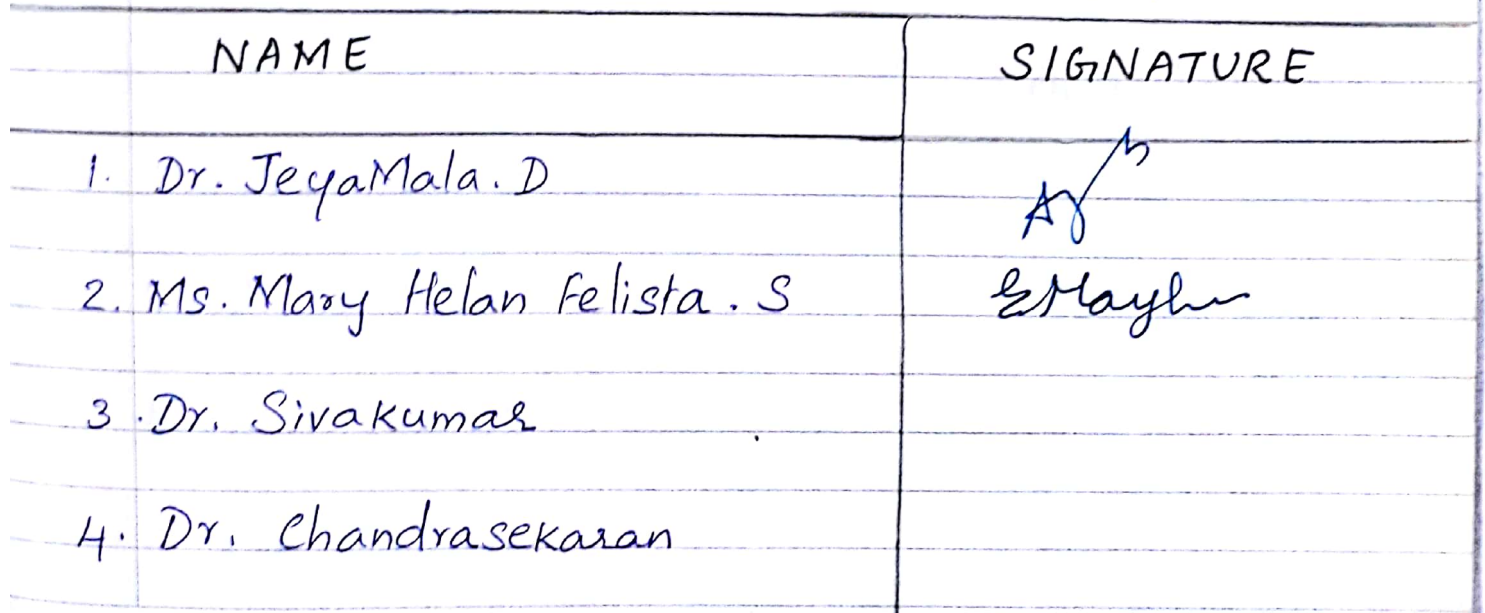 NAME SIGNATURE
1. Dr. JeyaMala. D
2. Ms. Mary Helan Felista. S
3. Dr. Sivakumar
4. Dr. Chandrasekaran